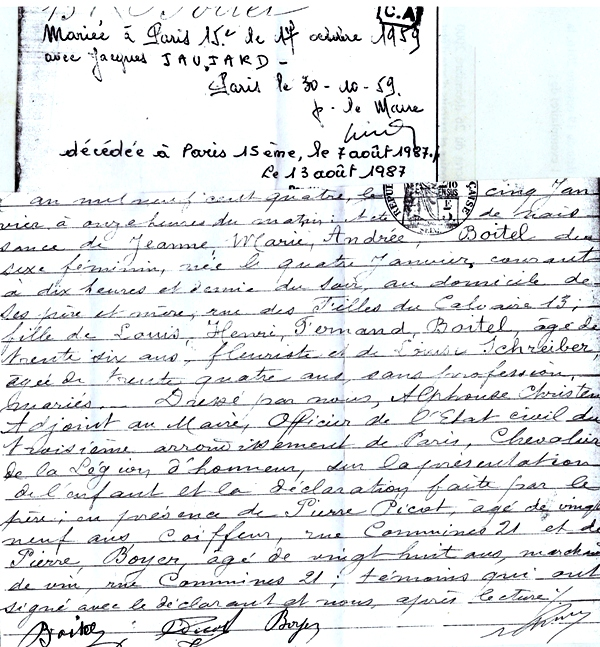 C.A
Mariée à Paris 15e le 17 octobre 1959
avec Jacques JAUJARD -
Paris le 30-10-59.
p. le Maire
décédée à Paris 15ème, le 7 août 1987./.
Le 13 août 1987
RÉPU ÇAISE
an mil neuf cent quatre, le cinq Jan
vier à onze heures du matin: Acte de nais
sance de Jeanne, Marie, Andrée, Boitel du
sexe féminin, née le quatre Janvier courant
à dix heures et demie du soir, au domicile de
ses père et mère, rue des Filles du Calvaire 13;
fille de Louis, Henri, Fernand, Boitel, âgé de
trente six ans, fleuriste et de Louise Schreiber,
agée de trente quatre ans, sans profession,
mariés. Dressé par nous, Alphonse Christen
Adjoint au Maire, Officier de l'Etat civil du
troisième arrondissement de Paris, Chevalier
de la Légion d'honneur, sur la présentation
de l'enfant et la déclaration faite par le
père; en présence de Pierre Picot, âgé de vingt
neuf ans Coiffeur, rue Commines 21 et de
Pierre, Boyer, âgé de vingt huit ans, marchand
de vin, rue Commines 21; témoins qui ont
signé avec le déclarant et nous, après lecture./.
Boitel Picot Boyer